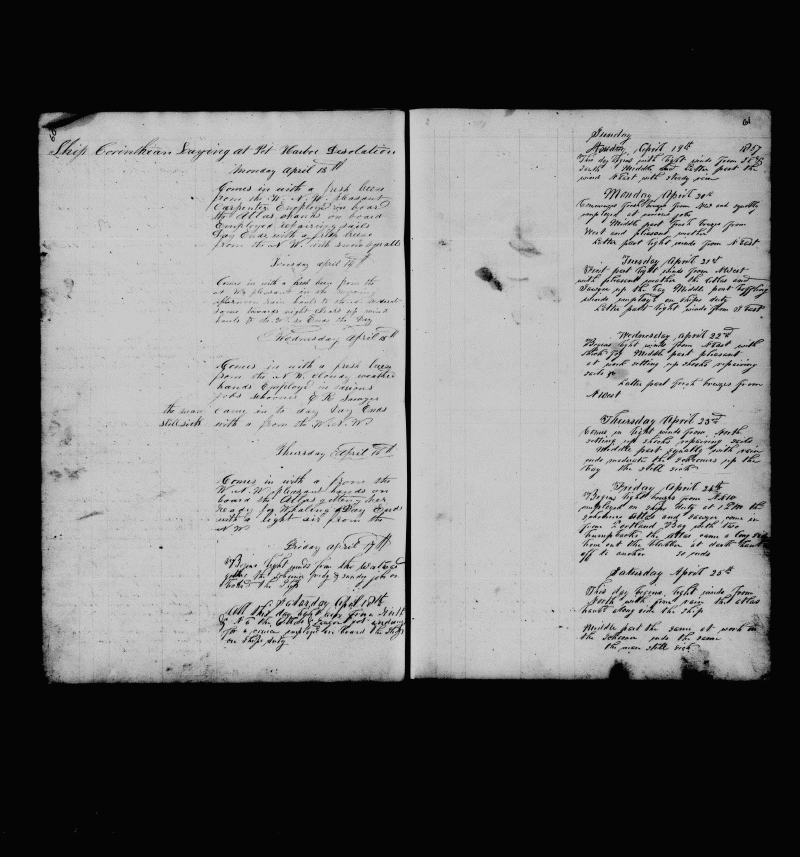 60
Ship Corinthian Laying at Pot Harbor Desolation
Monday April 13th
Comes in with a fresh breeze
from the W. N. W. pleasant
Carpenter Employed on board
the Atlas hands on board
Employed repairing sails
Day Ends with a fresh breeze
from the N W. with snow squalls
Tuesday April 14th
Comes in with a fresh breeze from the
N. W. pleasant in the
afternoon rain hauls to the
some towards night clears up wind
hauls to the so Ends the Day
Wednesday April 15th
Comes in with a fresh breeze
from the N W. cloudy weather
hands Employed in various
jobs schooner E R Sawyer
the man came in to day Day Ends
still sick with a from the W. N. W
Thursday April 16th
Comes in with a from the
W. N. W pleasant hands on
board the Atlas getting her
ready for Whaling Day Ends
with a light air from the
N W
Friday April 17th
Begins light winds from the
the schooner ready & sundry jobs on
board the Ship
Saturday April 18th
this day light from
to the Atlas & Sawyer got underway
for a cruise employed on board the Ship
on Ships duty
61
Sunday
April 19th 1857
This day begins with light winds from
South Middle and Latter part the
wind N East with steady rain
Monday April 20th
Commences fresh breezes from N West and squally
employed at various jobs
Middle part fresh breezes from
West and pleasant weather
Latter part light winds from N East
Tuesday April 21st
First part light winds from N West
with pleasant weather the Atlas and
Sawyer up the bay Middle part
hands employed on ships duty
Latter part light winds from S East
Wednesday April 22nd
Begins light winds from N East with
thick fog Middle part pleasant
at work setting up shooks repairing
sails &c
Latter part fresh breezes from
N West
Thursday April 23rd
Comes in light winds from North
setting up shooks repairing sails
Middle part squally with rain
ends moderate the schooners up the
bay the still sick
Friday April 24th
Begins light breezes from N N W
employed on ships duty at 12 M the
schooners Atlas and Sawyer came in
from Portland Bay with two
humpbacks the Atlas came a long side
hove out the blubber at dark
off to another so ends
Saturday April 25th
This day begins light winds from
North with fine rain the Atlas
hauls along side the ship
Middle part the same at work on
the schooner ends the same
the man still sick